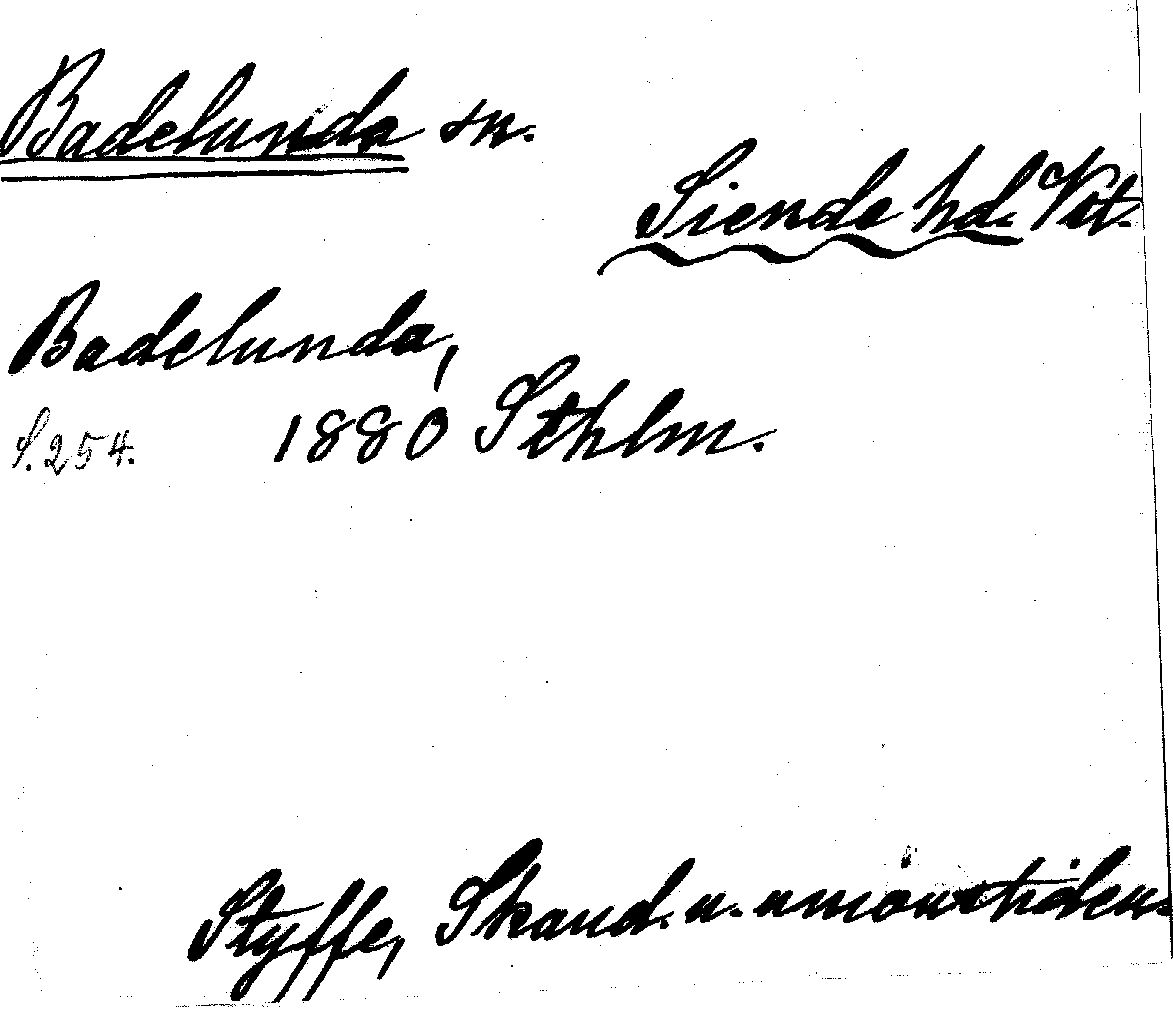 Badelunda sn.
Siende hd. Vst.
Badelunda,
S. 254. 1880 Sthlm.
Styffe, Skand. u. unionstiden.